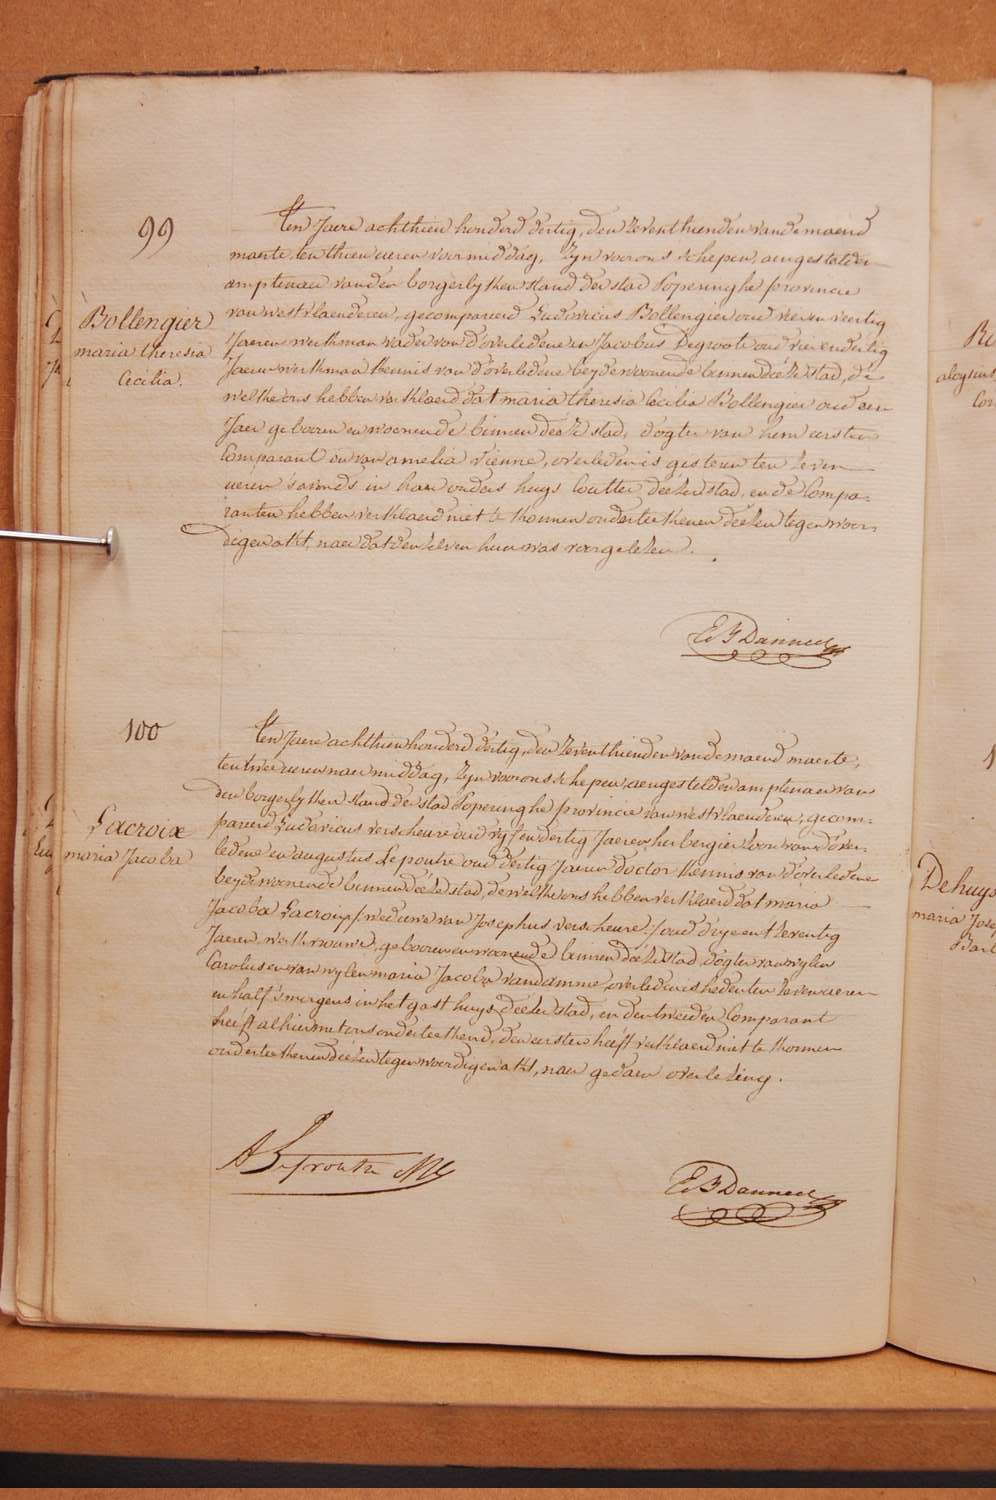 99
Bollengier
maria theresia
Cecilia.
Ten Jaere achthien honderd dertig, den Zeventhienden van de maend
maerte, ten thien ueren voormiddag, Zyn voor ons schepen, aengestelden
amptenaer van den borgerlyken stand der stad Poperinghe provincie
van westvlaenderen, gecompareerd Ludovicus Bollengier oud vier en veertig
Jaeren werkman vader van d'overledene en Jacobus Degroote oud vier en dertig
Jaeren werkman kennis van d'overledene beyde woonende binnen déeze stad, de
welke ons hebben verklaerd dat maria theresia Cecilia Bollengier oud een
Jaer geboren en woonende binnen déeze stad, dogter van hem eersten
Comparant en van amelia Vienne, overleden is gisteren ten zeven
ueren s'avonds in haer ouders huys Coutter déeser stad, en de Compa-
ranten hebben verklaerd niet te konnen onderteekenen déesen tegenwoor-
digen akt, naer dat den zelven hun was voorgelezen.
E B Danneel
100
Lacroix
maria Jacoba
Ten Jaere achthien honderd dertig, den Zeventhienden van de maend maerte,
ten twee ueren naermiddag, Zyn voor ons schepen, aengestelden amptenaer van
den borgerlyken stand der stad Poperinghe provincie van westvlaenderen, gecom-
pareerd Ludovicus verscheure oud vyf en dertig Jaeren herbergier Zoon van d'over-
ledene en augustus Lepoutre oud dertig Jaeren doctor kennis van d'overledene
beyde woonende binnen déeze stad, de welke ons hebben verklaerd dat maria
Jacoba Lacroix / weduwe van Josephus verscheure / oud drye en tzeventig
Jaeren, werkvrouwe, geboren en woonende binnen déeze stad, dogter van wylen
Carolus en van wylen maria Jacoba vandamme, overleden is heden ten zeven ueren
en half s'morgens in het gasthuys déeser stad, en den tweeden Comparant
heeft alhier met ons onderteekend, den eersten heeft verklaerd niet te konnen
onderteekenen déesen tegenwoordigen akt, naer gedaen overlezing.
A Lepoutre
E B Danneel
aloysius
Dehuys
maria Jose